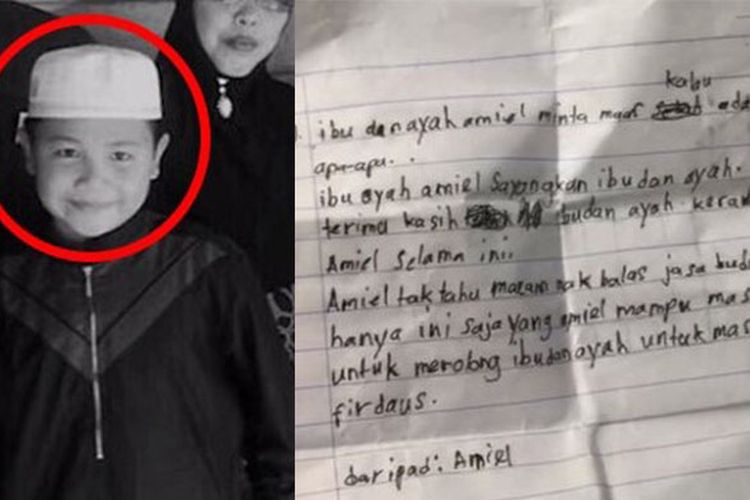 kalau
ibu dan ayah amiel minta maaf ada
apa-apa..
ibu ayah amiel sayangkan ibu dan ayah.
terima kasih ibu dan ayah kerana
Amiel selama ini.
Amiel tak tahu macam nak balas jasa
hanya ini saja yang amiel mampu
untuk menolong ibu dan ayah untuk
firdaus.
daripad: Amiel